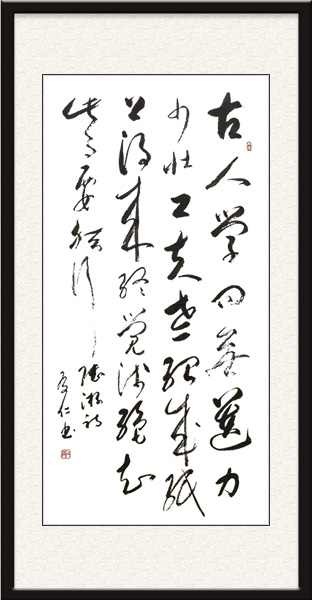 古人学问无遗力
少壮工夫老始成纸
上得来终觉浅绝知
此事要躬行
陆游诗
仁书